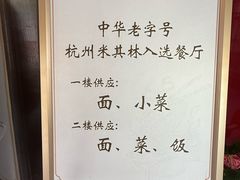 中华老字号
杭州米其林入选餐厅
一楼供应:
面、小菜
二楼供应:
面、菜、饭